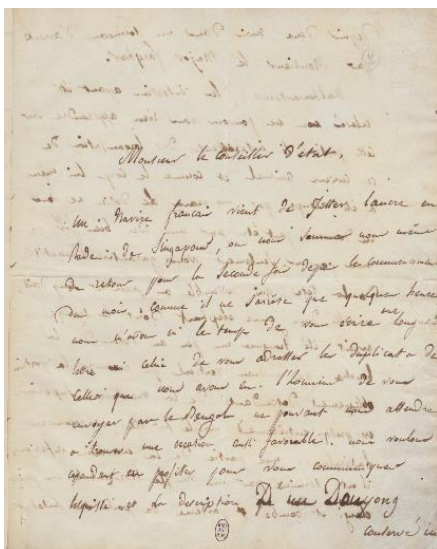 Monsieur le Conseiller d'état,
Un Navire français vient de jetter l'ancre en
rade de Singapour, ou nous sommes nous même
de retour pour la seconde fois depuis le commencement
du mois; comme il ne s'arrête que quelques heures
nous n'avons ni le temps de vous écrire une longue
lettre ni celui de vous adresser les duplicata de
celles que nous avons eu l'honneur de vous
envoyer par le Bengal ne pouvant nous attendre
a trouver une occasion aussi favorable. nous voulons
cependant en profiter pour vous communiquer
et la description De un Douyong
conservé